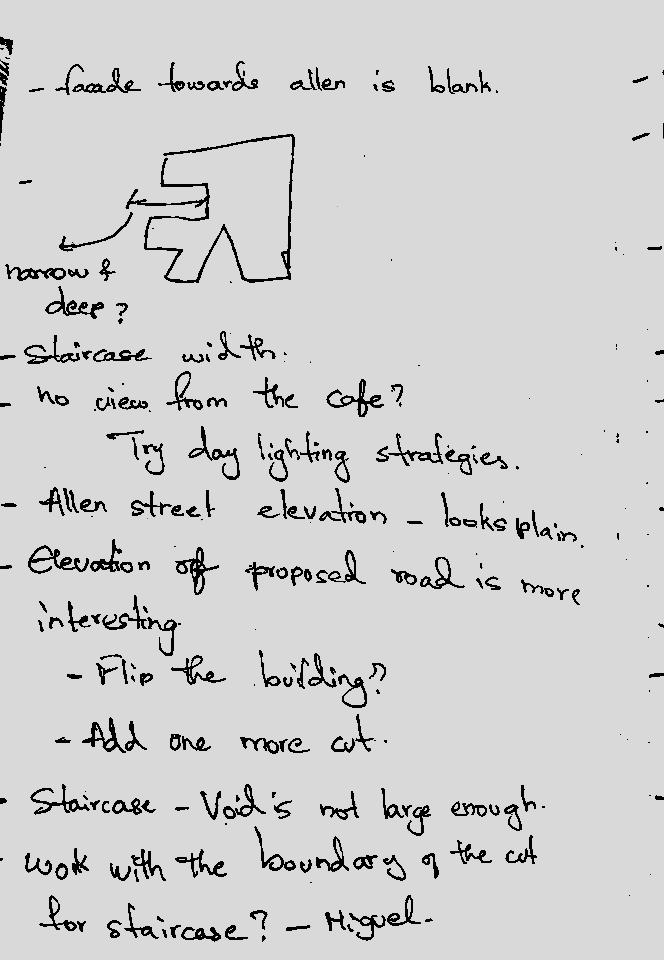 - facade towards allen is blank.
-
narrow &
deep?
- Staircase width.
- no view from the cafe?
Try day lighting strategies.
- Allen street elevation - looks plain.
- Elevation of proposed road is more
interesting
- Flip the building?
- Add one more cut.
- Staircase - Void is not large enough.
- Work with the boundary of the cut
for staircase? - Miguel.